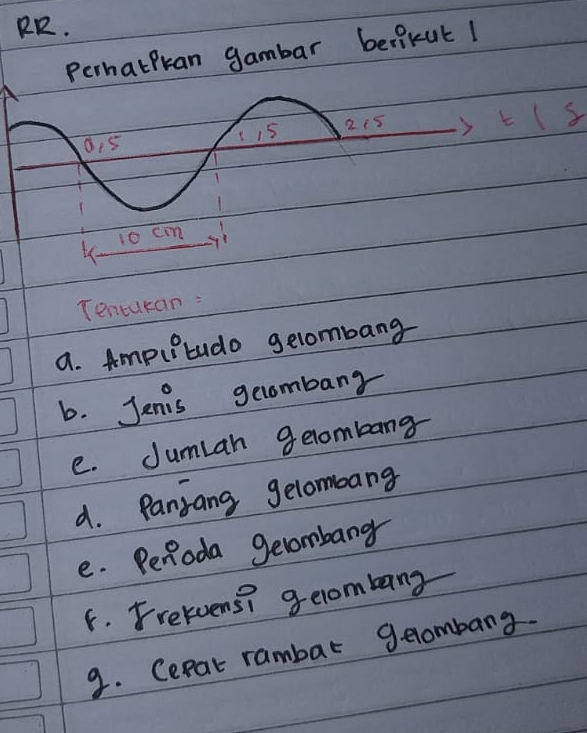 RR.
Perhatikan gambar berikut !
0,5 1,5 2,5 t ( s
10 cm
Tentukan :
a. Amplitudo gelombang
b. Jenis gelombang
c. Jumlah gelombang
d. Panjang gelombang
e. Perioda gelombang
f. Frekuensi gelombang
g. Cepat rambat gelombang.